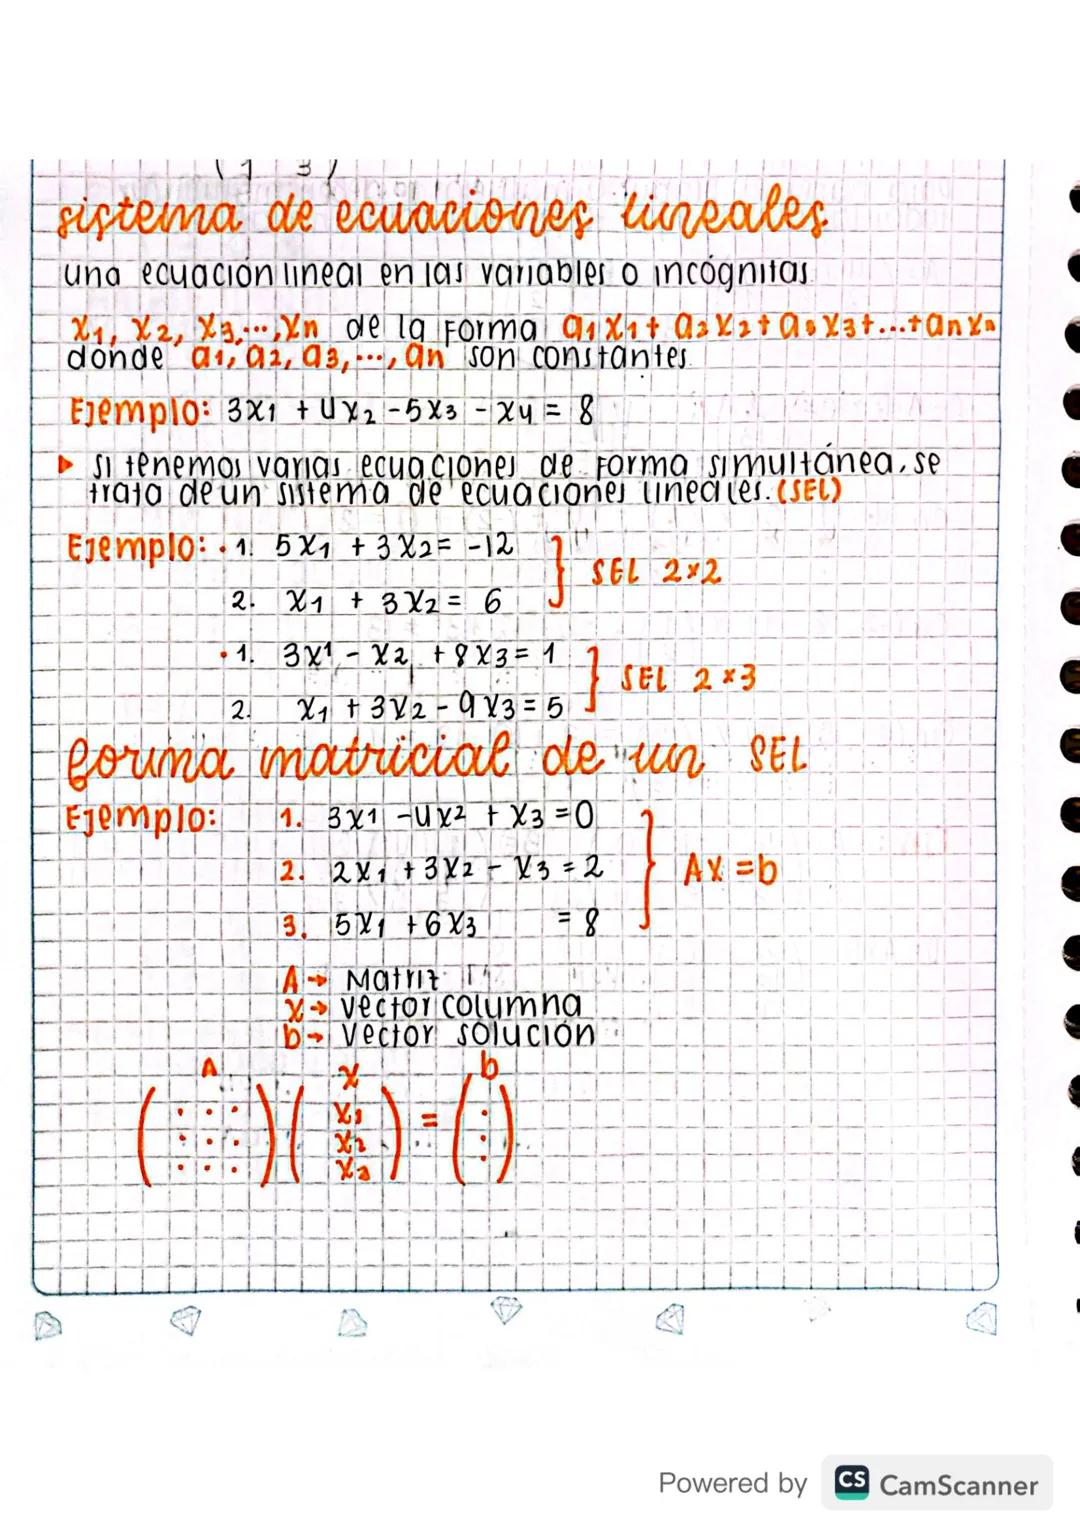 ( 1 3 )
sistema de ecuaciones lineales
una ecuación lineal en las variables o incógnitas
x1, x2, x3,...,xn de la forma a1x1+ a2x2+ a3x3+...+anxn
donde a1, a2, a3,..., an son constantes.
Ejemplo: 3x1 + 4x2 -5x3 - x4 = 8
▶ si tenemos varias ecuaciones de forma simultánea, se
trata de un sistema de ecuaciones lineales. (SEL)
Ejemplo: • 1. 5x1 + 3x2= -12 } SEL 2x2
2. x1 + 3x2 = 6
• 1. 3x1 - x2 + 8x3 = 1 } SEL 2x3
2. x1 + 3x2 - 9x3 = 5
forma matricial de un SEL
Ejemplo: 1. 3x1 -4x2 + x3 =0
2. 2x1 + 3x2 - x3 = 2 } Ax =b
3. 5x1 + 6x3 = 8
A → Matriz
x → vector columna
b → vector solución
A x b
( . . . ) ( x1 ) = ( . )
( . . . ) ( x2 ) ( . )
( . . . ) ( x3 ) ( . )
Powered by CS CamScanner